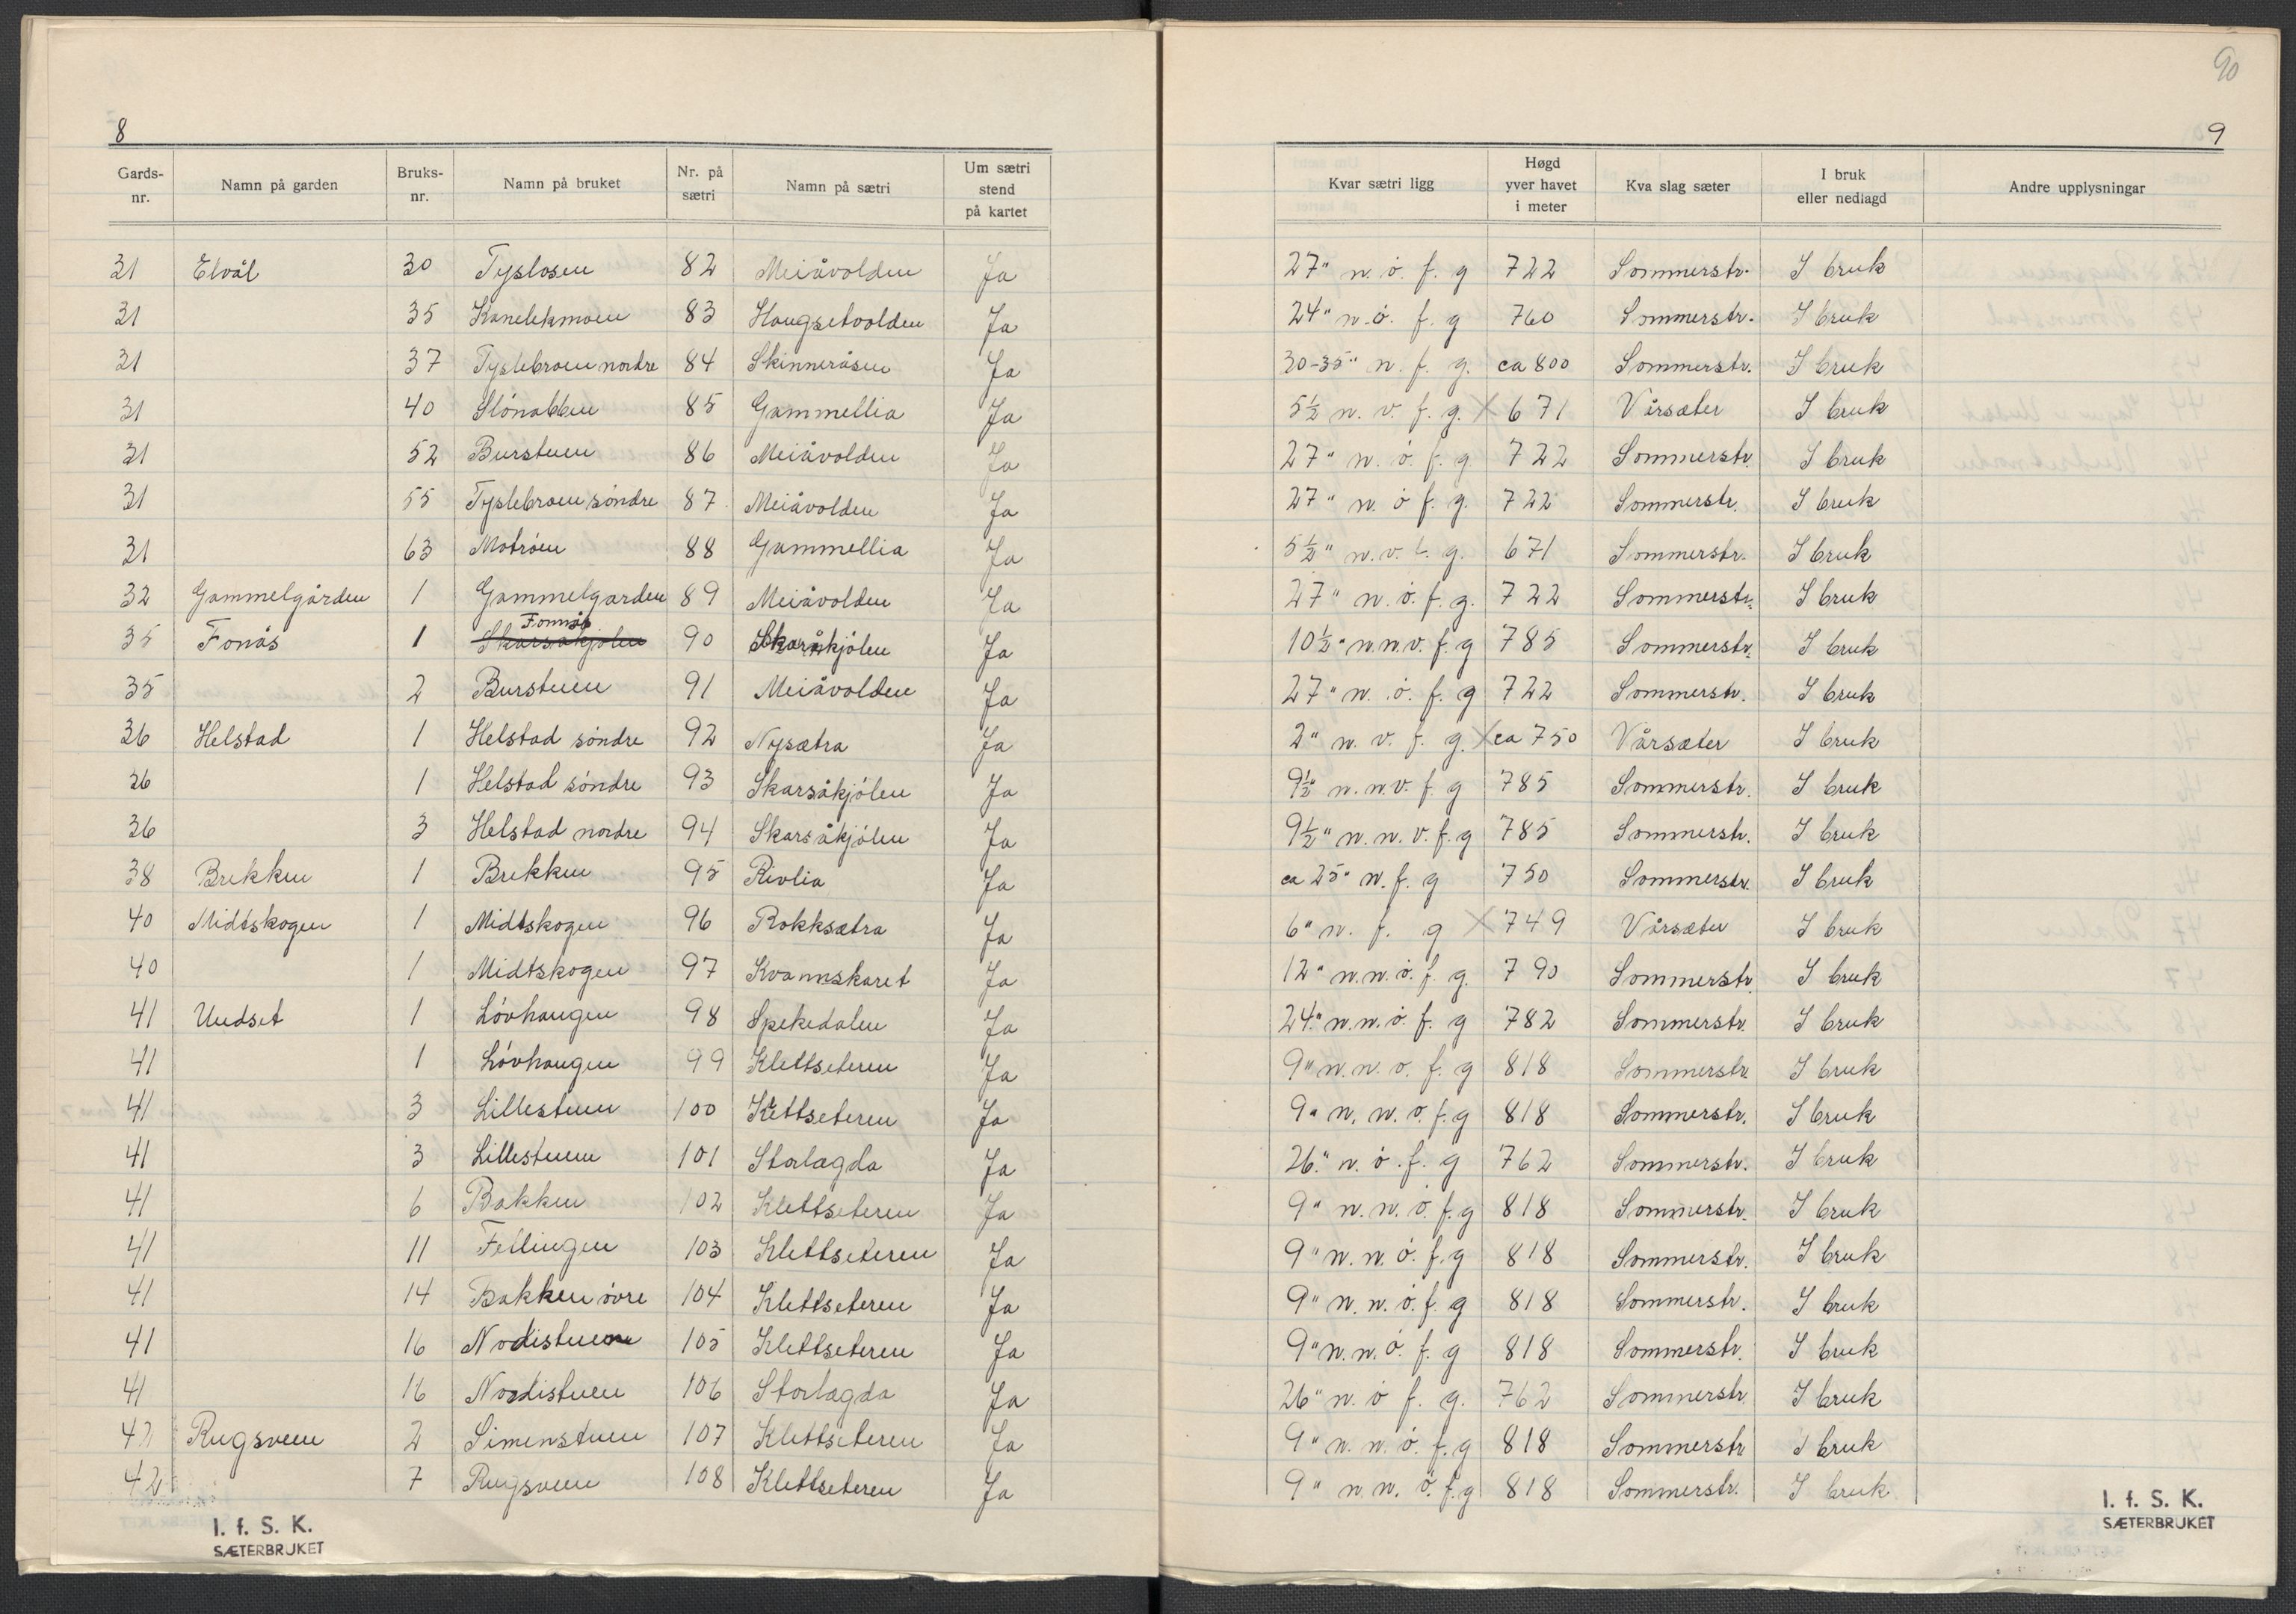 90
8
9
Gards-nr. Namn på garden Bruks-nr. Namn på bruket Nr. på sætri Namn på sætri Um sætri stend på kartet Kvar sætri ligg Høgd yver havet i meter Kva slag sæter I bruk eller nedlagd Andre upplysningar
31 Elvål 30 Tyslosen 82 Meiåvolden Ja 27" n. ö. f. g 722 Sommerstr. I bruk
31 35 83 Haugsetvolden Ja 24" n. ö. f. g 760 Sommerstr. I bruk
31 37 Tyslebroen nordre 84 Skinneråsen Ja 30-35" n. f. g. ca 800 Sommerstr. I bruk
31 40 Slönabben 85 Gammellia Ja 5½ n. v. f. g. X 671 Vårsæter I bruk
31 52 Burstuen 86 Meiåvolden Ja 27" n. ö. f. g 722 Sommerstr. I bruk
31 55 Tyslebroen söndre 87 Meiåvolden Ja 27" n. ö f. g. 722 Sommerstr. I bruk
31 63 Motröen 88 Gammellia Ja 5½" n. v. f. g. 671 Sommerstr. I bruk
32 Gammelgården 1 Gammelgarden 89 Meiåvolden Ja 27" n. ö. f. g. 722 Sommerstr. I bruk
35 Fonås 1 Skarsåkjölen Fonnås 90 Skaråkjölen Ja 10½" n. n. v. f. g 785 Sommerstr. I bruk
35 2 Burstuen 91 Meiåvolden Ja 27" n. ö. f. g 722 Sommerstr. I bruk
36 Helstad 1 Helstad söndre 92 Nysætra Ja 2" n. v. f. g. X ca 750 Vårsæter I bruk
36 1 Helstad söndre 93 Skarsåkjölen Ja 9½" n. n. v. f. g 785 Sommerstr. I bruk
36 3 Helstad nordre 94 Skarsåkjölen Ja 9½" n. n. v. f. g 785 Sommerstr. I bruk
38 Brekken 1 Brekken 95 Rivlia Ja ca 25" n. f. g 750 Sommerstr. I bruk
40 Midtskogen 1 Midtskogen 96 Rokksætra Ja 6" n. f. g X 749 Vårsæter I bruk
40 1 Midtskogen 97 Kvannskaret Ja 12" n. n. ö. f. g. 790 Sommerstr. I bruk
41 Undset 1 Lövhaugen 98 Spekedalen Ja 24" n. n. ö. f. g 782 Sommerstr. I bruk
41 1 Lövhaugen 99 Klettseteren Ja 9" n. n. o. f. g 818 Sommerstr. I bruk
41 3 Lillestuen 100 Klettseteren Ja 9" n. n. o. f. g 818 Sommerstr. I bruk
41 3 Lillestuen 101 Storlægda Ja 26" n. ö. f. g 762 Sommerstr. I bruk
41 6 Bakken 102 Klettseteren Ja 9" n. n. ö. f. g 818 Sommerstr. I bruk
41 11 Fellingen 103 Klettseteren Ja 9" n. n. ö. f. g 818 Sommerstr. I bruk
41 14 Bakken övre 104 Klettseteren Ja 9" n. n. ö. f. g 818 Sommerstr. I bruk
41 16 Nordistuen 105 Klettseteren Ja 9" n. n. ö. f. g 818 Sommerstr. I bruk
41 16 Nordistuen 106 Storlægda Ja 26" n. ö f. g. 762 Sommerstr. I bruk
42 Rugsveen 2 Simenstuen 107 Klettseteren Ja 9" n. n. ö. f. g 818 Sommerstr I bruk
42 7 Rugsveen 108 Klettseteren Ja 9" n. n. ö. f. g 818 Sommerstr. I bruk
I. f. S. K.
SÆTERBRUKET
I. f. S. K.
SÆTERBRUKET